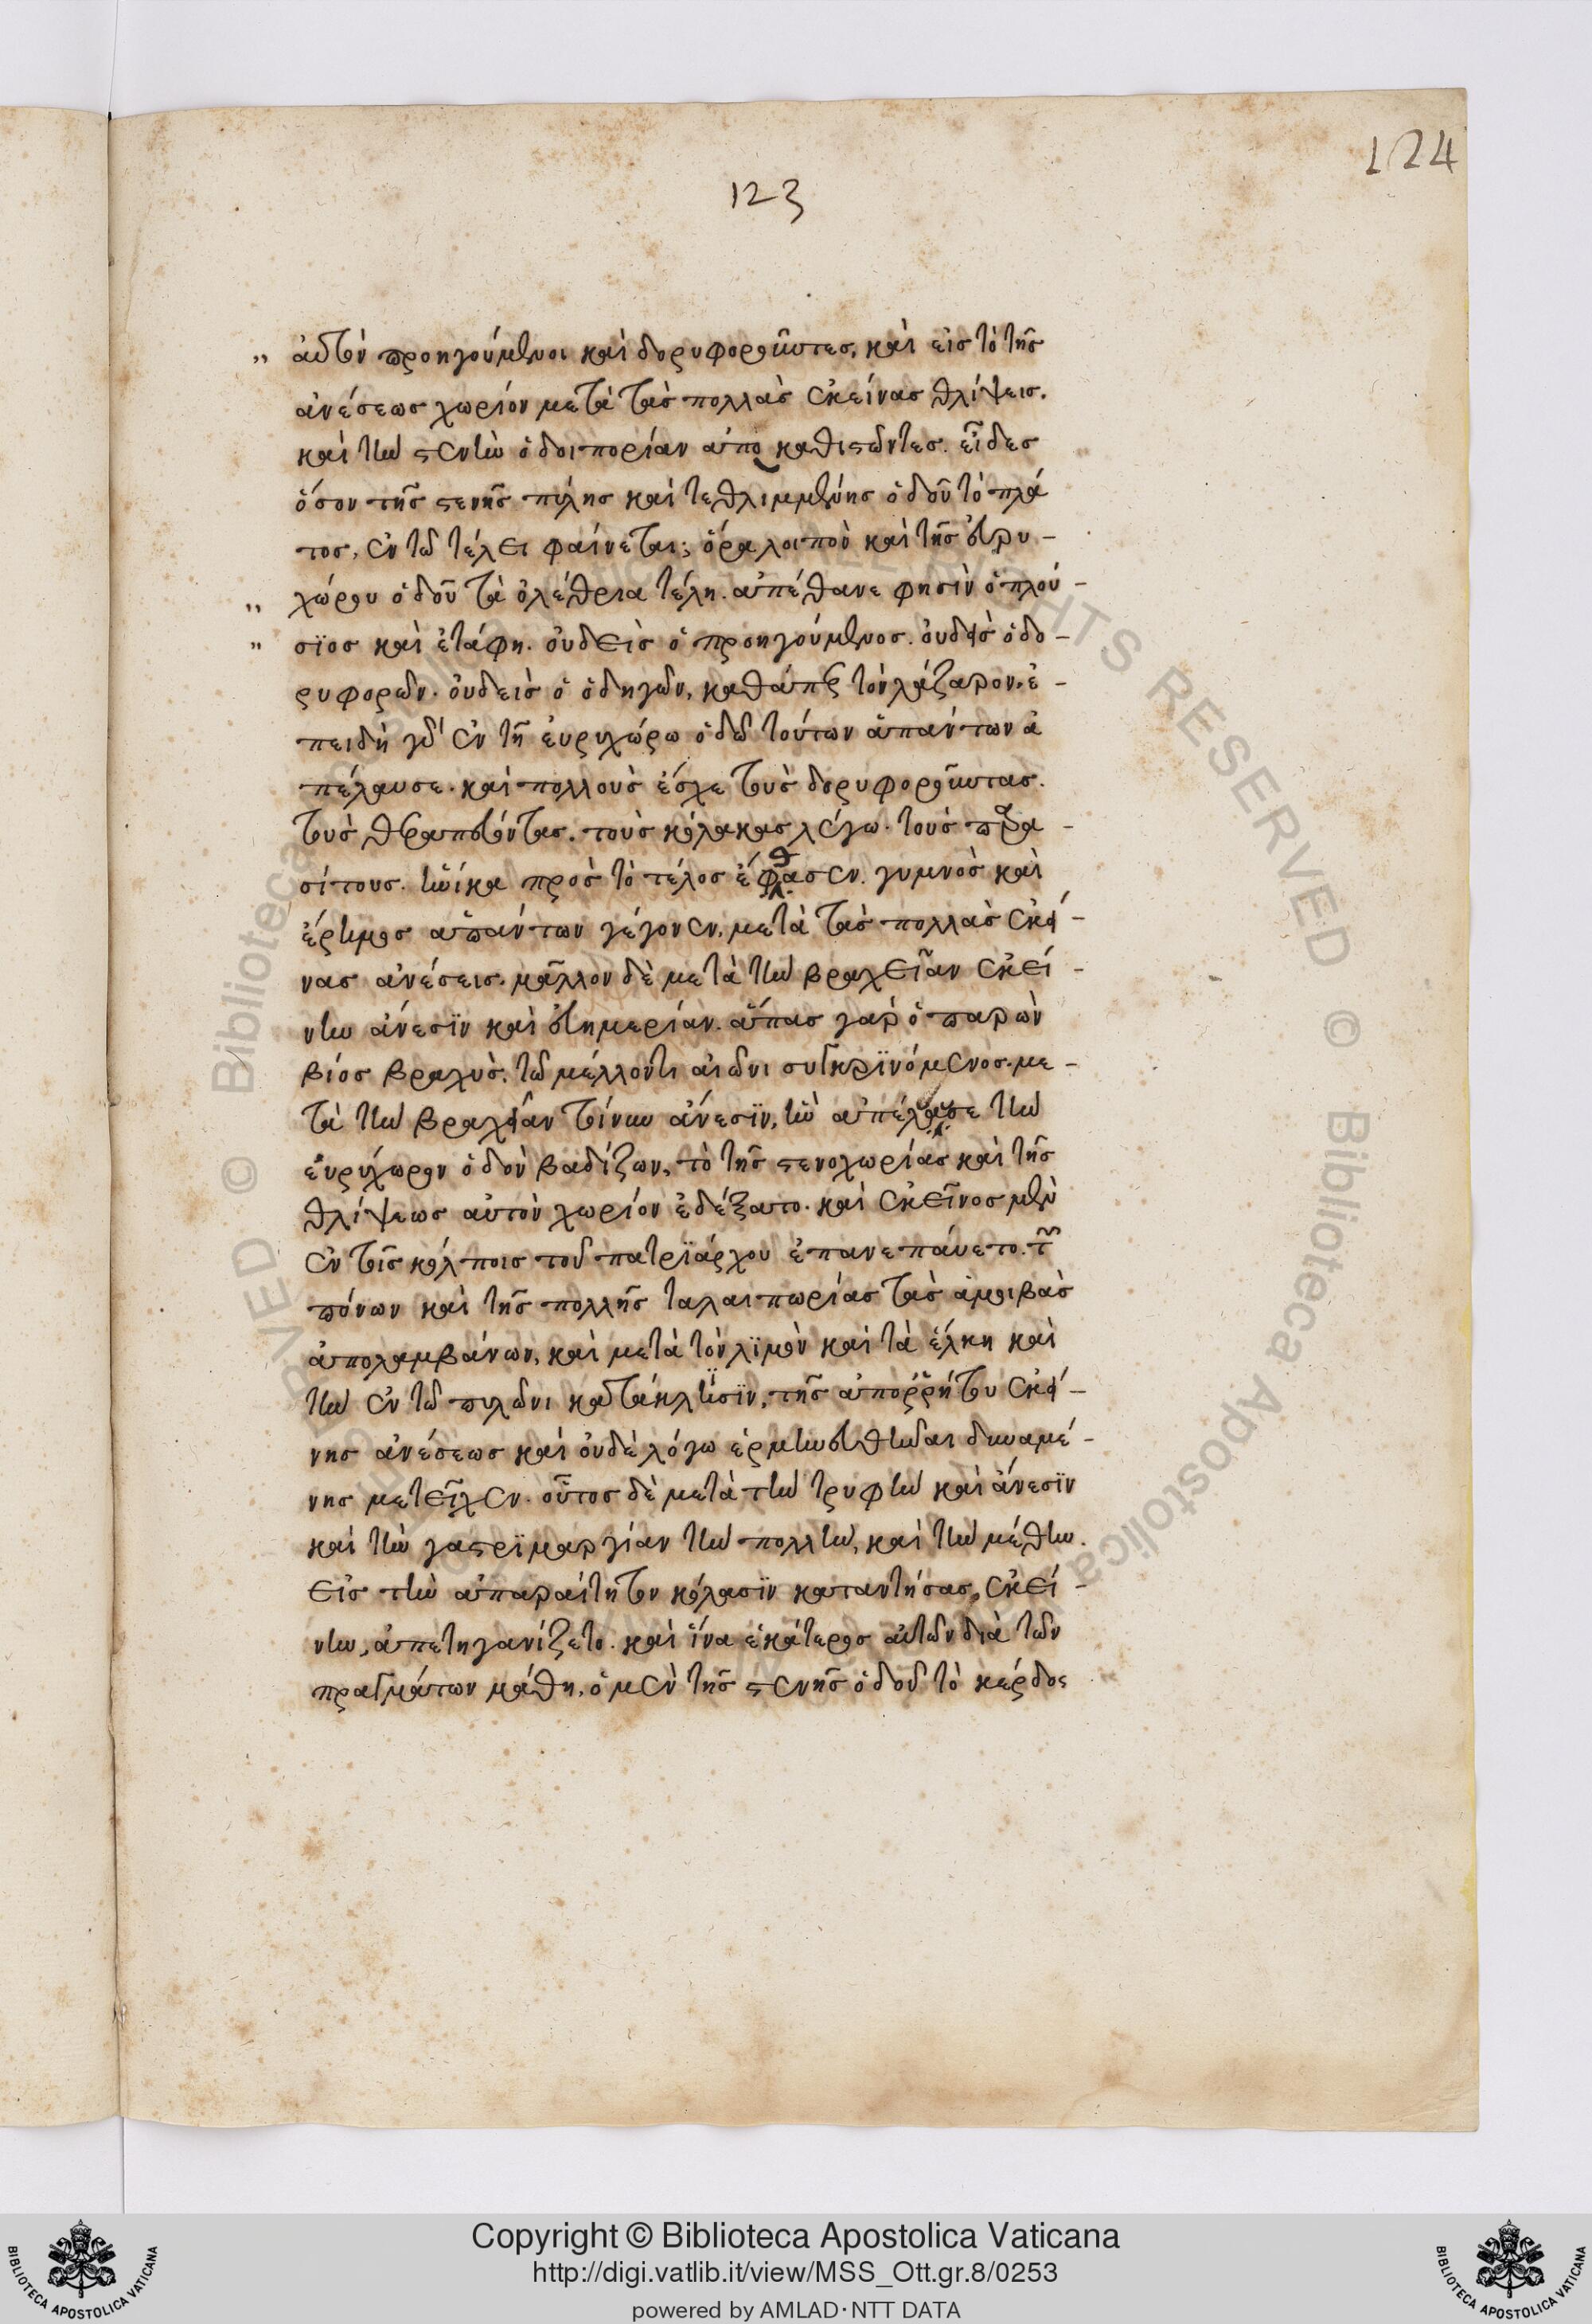 124
123
„ αὐτὸν προηγούμενοι καὶ δορυφοροῦντες, καὶ εἰς τὸ τῆς
ἀνέσεως χωρίον μετὰ τὰς πολλὰς ἐκείνας θλίψεις.
καὶ τὴν στενὴν ὁδοιπορίαν ἀποκαθιστῶντες. εἶδες
ὅσον τῆς στενῆς πύλης καὶ τεθλιμμένης ὁδοῦ τὸ πλά
τος, ἐν τῷ τέλει φαίνεται; ὅρα λοιπὸν καὶ τῆς εὐρυ-
„ χώρου ὁδοῦ τὰ ὀλέθρια τέλη. ἀπέθανε φησὶν ὁ πλού-
„ σϊος καὶ ἐτάφη. οὐδεὶς ὁ προηγούμενος. οὐδεὶς ὁ δο-
ρυφορῶν. οὐδεὶς ὁ ὁδηγῶν, καθάπερ τὸν λάζαρον. ἐ-
πειδὴ γὰρ ἐν τῇ εὐρυχώρω ὁδῷ τούτων ἁπάντων ἀ
πέλαυσε. καὶ πολλοὺς ἔσχε τοὺς δορυφοροῦντας.
τοὺς θεραπεύοντας. τοὺς κόλακας λέγω. τοὺς παρα-
σίτους. ἡνίκα πρὸς τὸ τέλος ἔφθασεν. γυμνὸς καὶ
ἔρημος ἁπάντων γέγονεν, μετὰ τὰς πολλὰς ἐκεί-
νας ἀνέσεις. μᾶλλον δὲ μετὰ τὴν βραχεῖαν ἐκεί-
νην ἄνεσϊν καὶ εὐημερίαν. ἅπας γὰρ ὁ παρὼν
βίος βραχὺς, τῷ μέλλοντι αἰῶνι συγκρϊνόμενος. με-
τὰ τὴν βραχεῖαν τοίνυν ἄνεσϊν, ἣν ἀπέλαυσε τὴν
εὐρύχωρον ὁδὸν βαδίζων, τὸ τῆς στενοχωρίας καὶ τῆς
θλίψεως αὐτὸν χωρίον ἐδέξατο. καὶ ἐκεῖνος μὲν
ἐν τοῖς κόλποις τοῦ πατρϊάρχου ἐπανεπάυετο. τῶν
πόνων καὶ τῆς πολλῆς ταλαιπωρίας τὰς ἀμοιβὰς
ἀπολαμβάνων, καὶ μετὰ τὸν λϊμὸν καὶ τὰ ἕλκη καὶ
τὴν ἐν τῷ πυλῶνι κατάκλισϊν, τῆς ἀποῤῥήτου ἐκεί-
νης ἀνέσεως καὶ οὐδὲ λόγω ἑρμηνευθῆναι δυναμέ-
νης μετεῖχεν. οὗτος δὲ μετὰ τὴν τρυφὴν καὶ ἄνεσϊν
καὶ τὴν γαστρϊμαργίαν τὴν πολλὴν, καὶ τὴν μέθην.
εἰς τὴν ἀπαραίτητον κόλασϊν καταντήσας, ἐκεί-
νην, ἀπετηγανίζετο. καὶ ἵνα ἑκάτερος αὐτῶν διὰ τῶν
πραγμάτων μάθη, ὁ μὲν τῆς στενῆς ὁδοῦ τὸ κέρδος
Copyright © Biblioteca Apostolica Vaticana
http://digi.vatlib.it/view/MSS_Ott.gr.8/0253
powered by AMLAD·NTT DATA